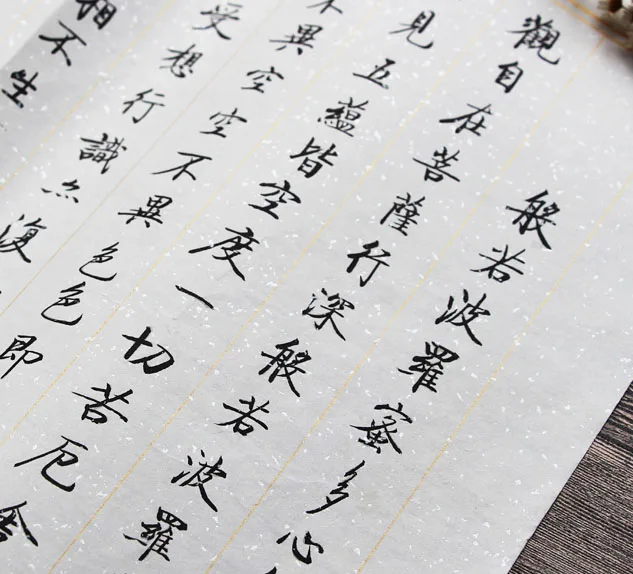 般若波羅蜜多心
觀自在菩薩行深般若波羅
見五蘊皆空度一切苦厄舍
不異空空不異色色即
受想行識亦復
相不生